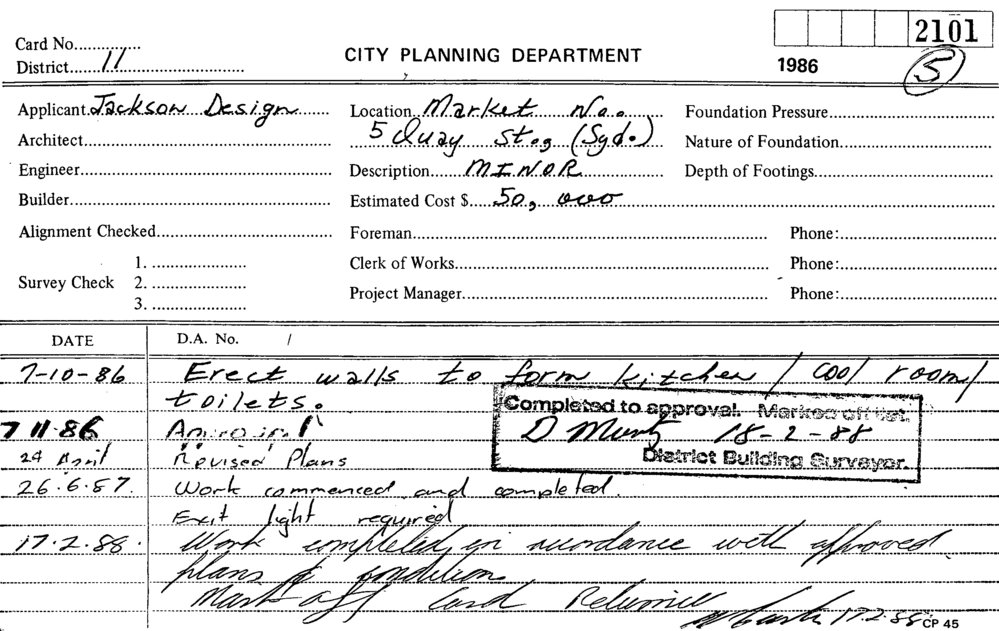 2101
Card No.
District 11
CITY PLANNING DEPARTMENT
1986
5
Applicant Jackson Design
Location Market No.
Foundation Pressure
Architect
5 Quay St., (Syd.)
Nature of Foundation
Engineer
Description MINOR
Depth of Footings
Builder
Estimated Cost $ 50,000
Alignment Checked
Foreman
Phone:
Survey Check
1.
2.
3.
Clerk of Works
Phone:
Project Manager
Phone:
DATE
D.A. No. /
7-10-86 Erect walls to form kitchen / cool room /
toilets.
Completed to approval. Marked off list.
7 11.86
D 18-2-88
24 April Revised Plans
District Building Surveyor.
26.6.87. Work commenced and completed.
Exit light required
17.2.88. Work completed in accordance with approved
plans & condition
Mark off Card
17.2.88 CP 45